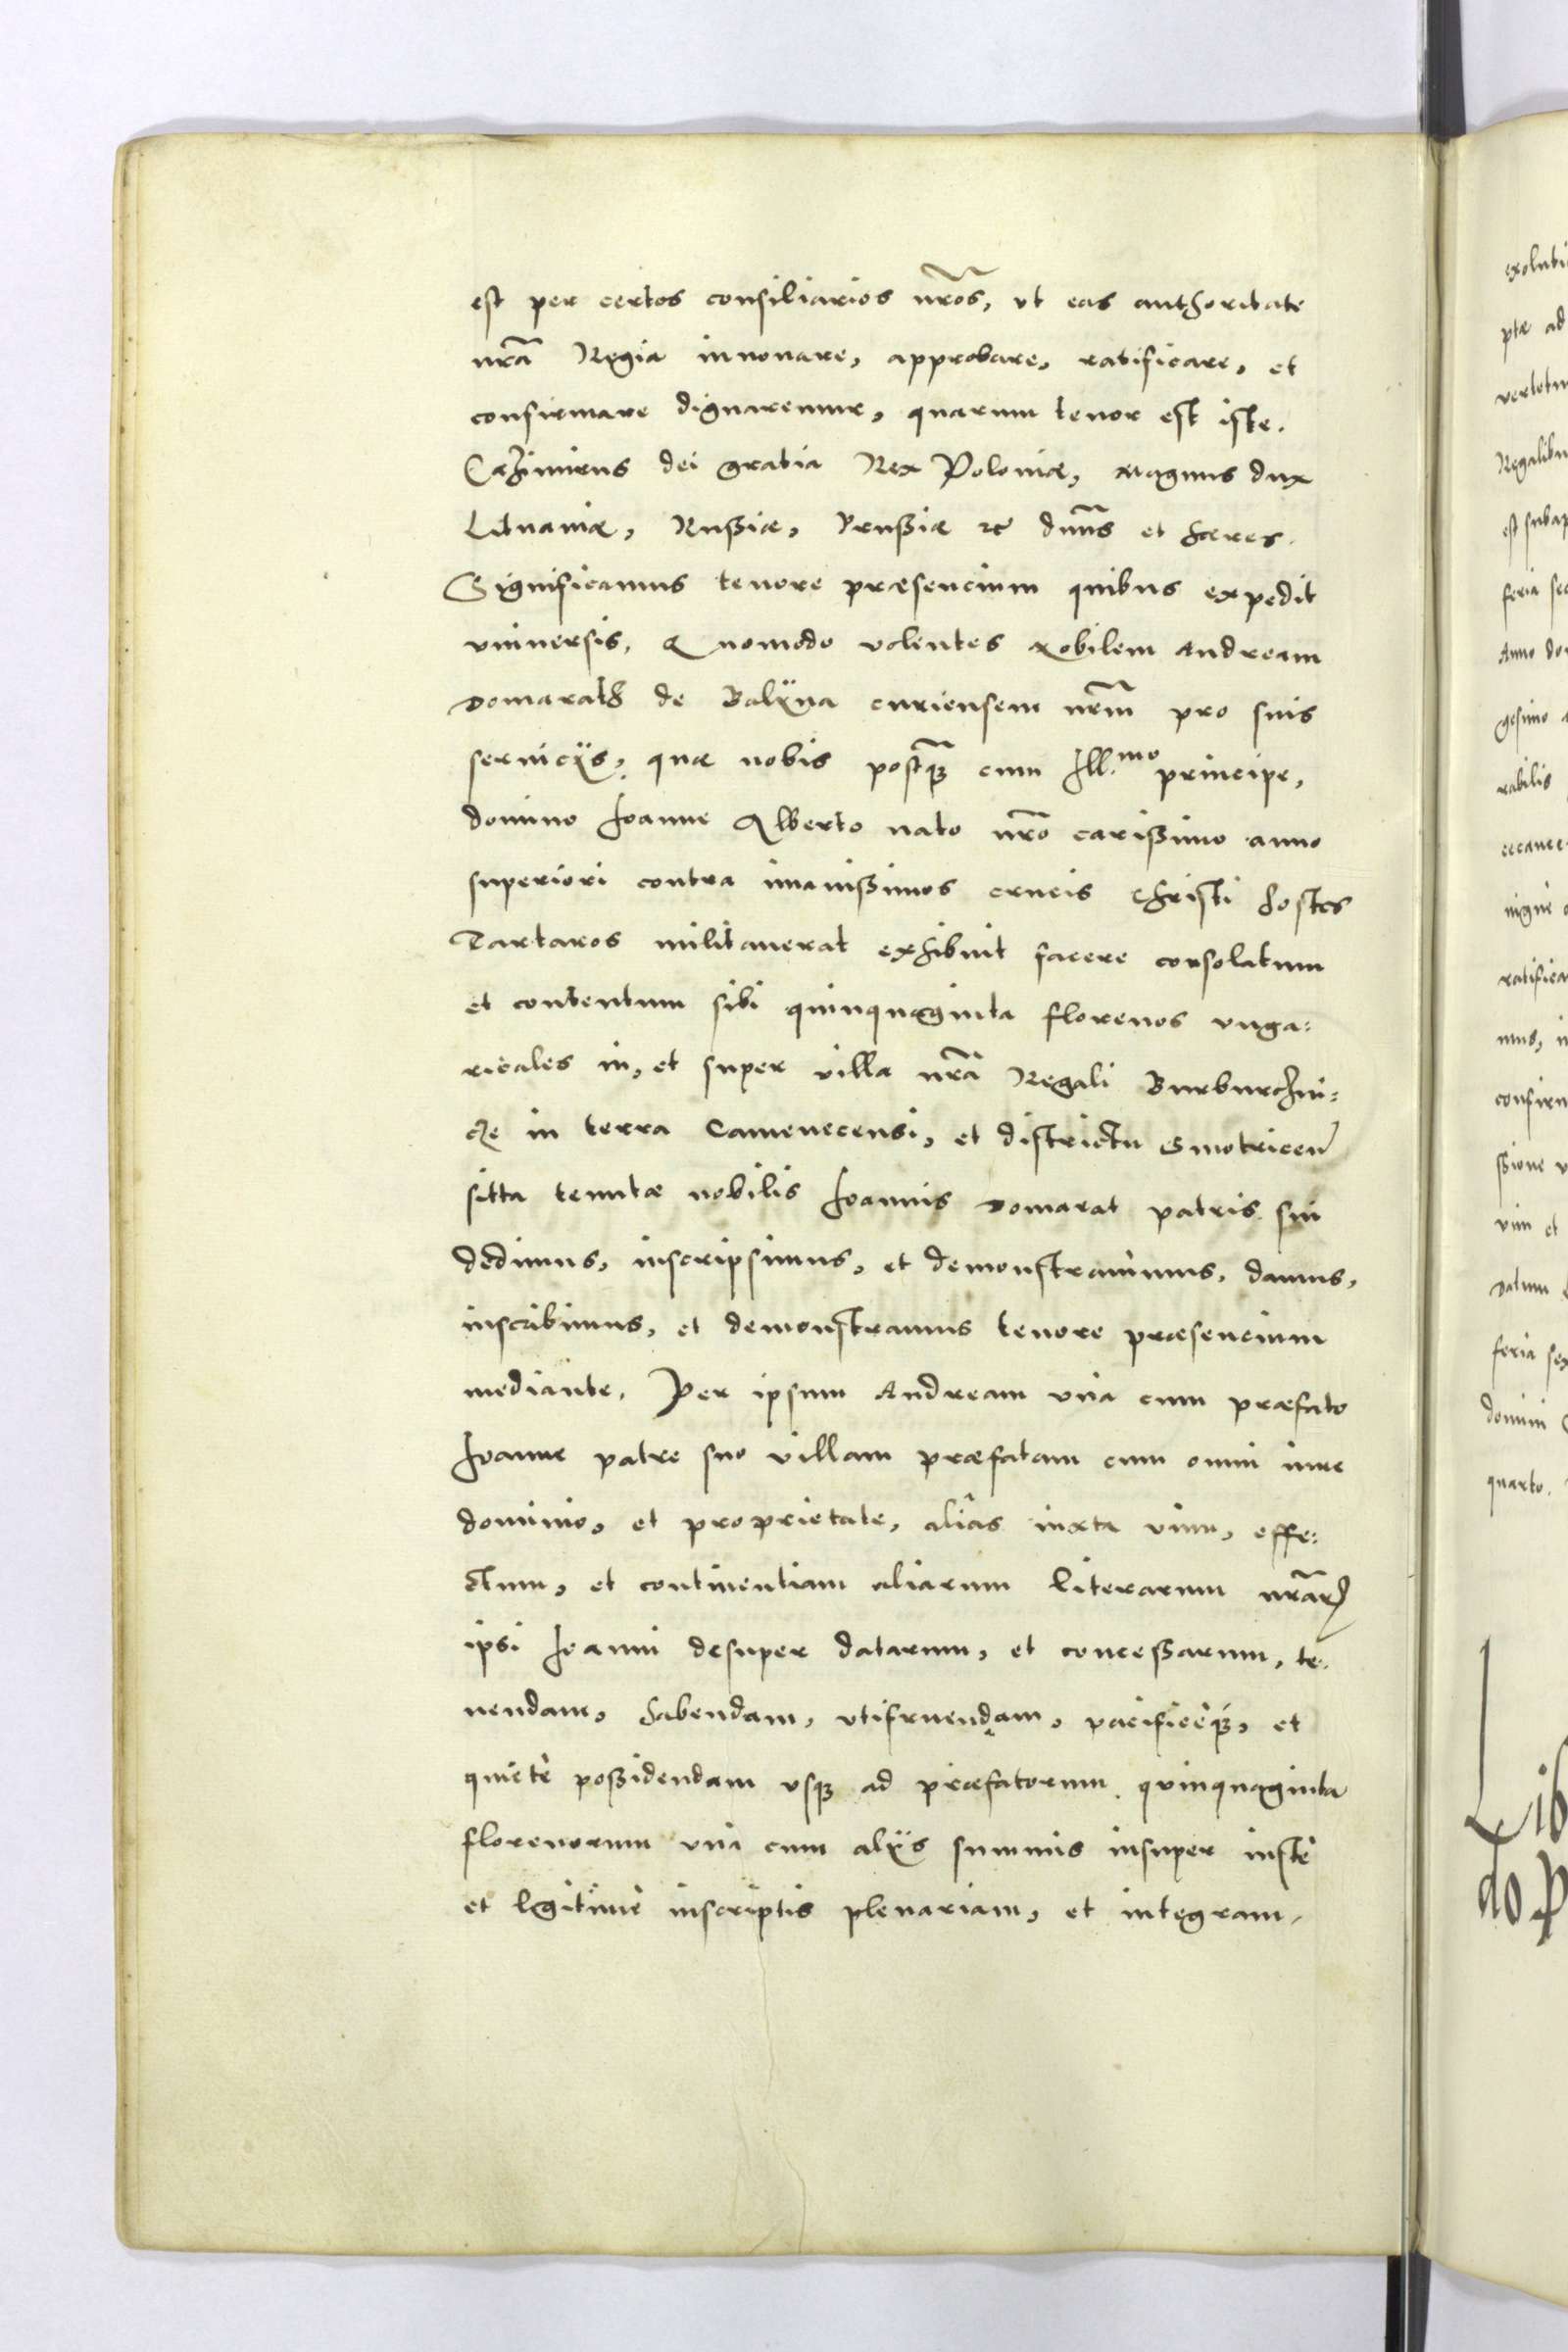 est per certos consiliarios nr̃os, vt eas authoritate
nr̃a Regia innouare, approbare, ratificare, et
confirmare dignaremur, quarum tenor est iste.
Cazimirus dei gratia Rex Poloniæ, Magnus dux
Lituaniæ, Rußiæ, Prußiæ etc dnñs et hæres.
Significamus tenore præsencium quibus expedit
vniuersis, Quomodo volentes Nobilem Andream
Domarath de Balyna curiensem nr̃m pro suis
seruicijs, quæ nobis postq̃ȝ cum Ill.mo principe,
domino Joanne Alberto nato nr̃o carißimo anno
superiori contra imanißimos crucis Christi hostes
Tartaros militauerat exhibuit facere consolatum
et contentum sibi quinquaginta florenos vnga:
ricales in, et super villa nr̃a Regali Burburchni:
cze in terra Camenecensi, et districtu Smotricen̄
sitta tenutæ nobilis Joannis Domarat patris sui
dedimus, inscripsimus, et demonstrauimus, damus,
inscribimus, et demonstramus tenore præsencium
mediante. Per ipsum Andream vnà cum præfato
Joanne patre suo villam præfatam cum omni iure
dominio, et proprietate, aliàs iuxta vim, effe:
ctum, et continentiam aliarum literarum nr̃arꝝ
ipsi Joanni desuper datarum, et conceßarum, te:
nendam, habendam, vtifruendam, pacificèqȝ, et
quietè poßidendam vsqȝ ad præfatorum quinquaginta
florenorum vnà cum alijs summis insuper iustè
et legitimè inscriptis plenariam, et integram
exoluti
ptæ ad
Regalibu
est subap
feria sec
Anno do
gesimo
rabilis
ratifica
mus, i
confirm
ßione v
vim et
Datum
feria sex
domini
quarto.
Lib
do P